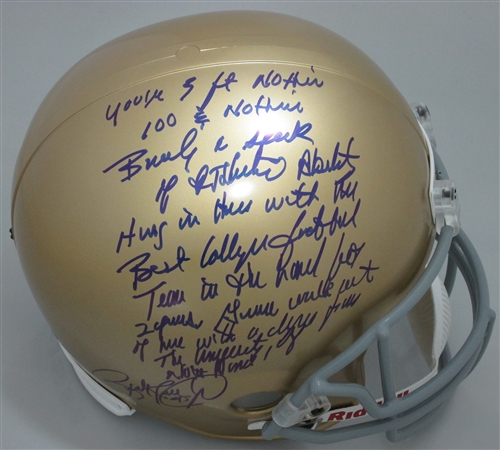 you're 5 ft nothin
100 & nothin
Barely a speck
of athletic ability
Hung in there with the
Best college football
Team in the land for
2 years & your walk out
of here with a degree from
The University of
Notre Dame!
Riddell